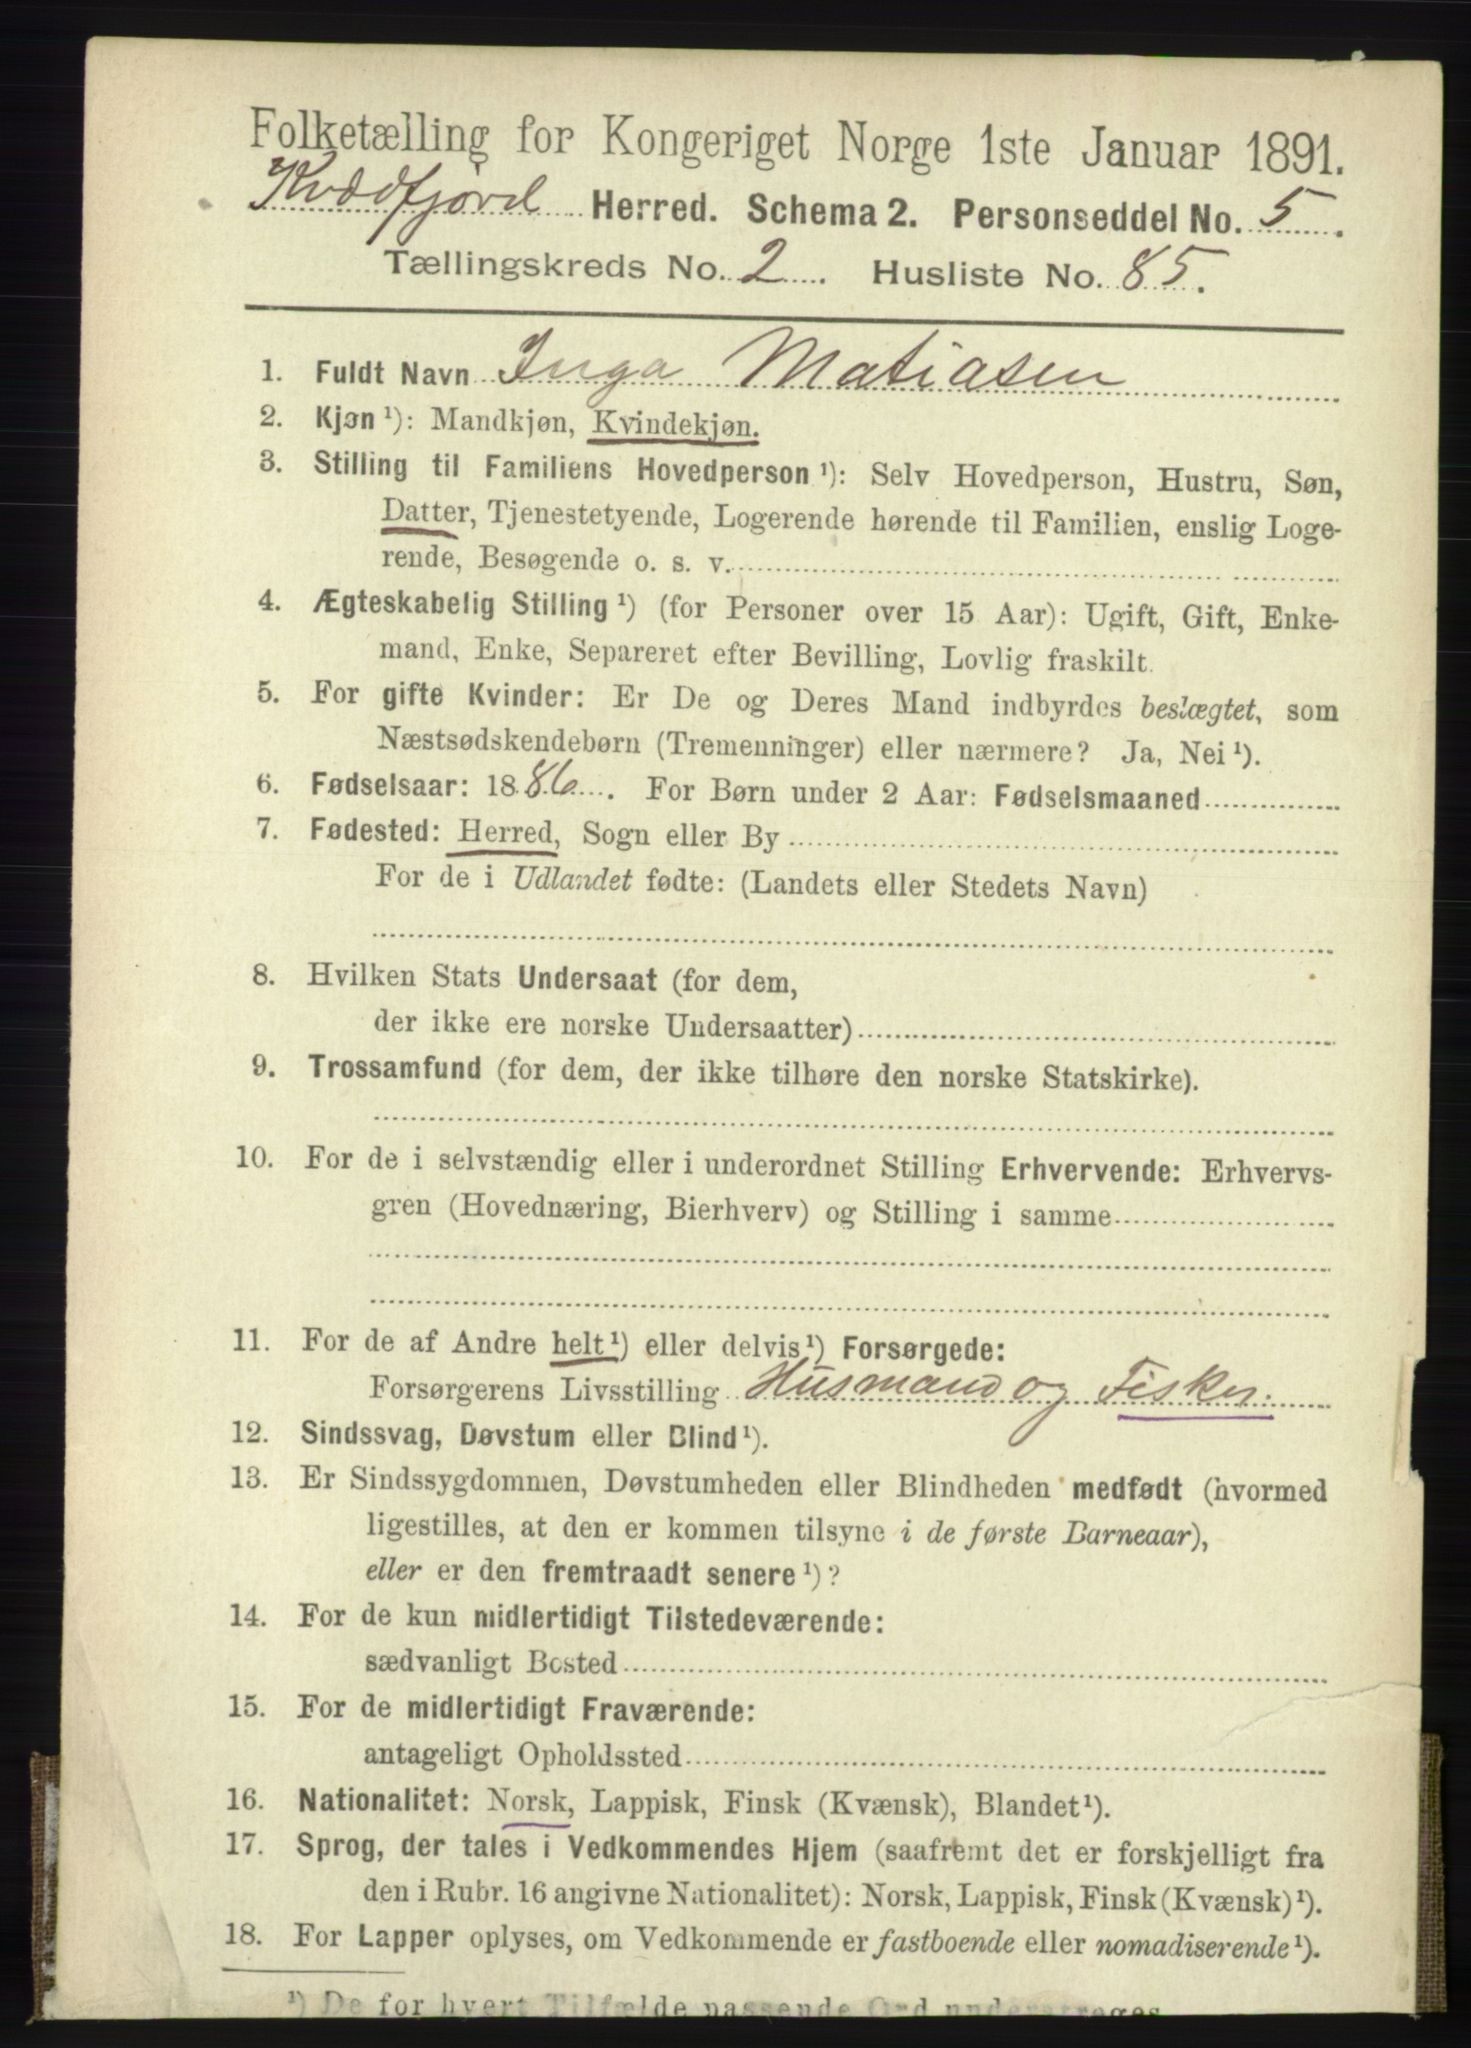 Folketælling for Kongeriget Norge 1ste Januar 1891.
Kvædfjord Herred. Schema 2. Personseddel No. 5.
Tællingskreds No. 2. Husliste No. 85.
1. Fuldt Navn Inga Matiasen
2. Kjøn ¹): Mandkjøn, Kvindekjøn.
3. Stilling til Familiens Hovedperson ¹): Selv Hovedperson, Hustru, Søn,
Datter, Tjenestetyende, Logerende hørende til Familien, enslig Loge-
rende, Besøgende o. s. v.
4. Ægteskabelig Stilling ¹) (for Personer over 15 Aar): Ugift, Gift, Enke-
mand, Enke, Separeret efter Bevilling, Lovlig fraskilt.
5. For gifte Kvinder: Er De og Deres Mand indbyrdes beslægtet, som
Næstsødskendebørn (Tremenninger) eller nærmere? Ja, Nei ¹).
6. Fødselsaar: 1886. For Børn under 2 Aar: Fødselsmaaned
7. Fødested: Herred, Sogn eller By
For de i Udlandet fødte: (Landets eller Stedets Navn)
8. Hvilken Stats Undersaat (for dem,
der ikke ere norske Undersaatter)
9. Trossamfund (for dem, der ikke tilhøre den norske Statskirke).
10. For de i selvstændig eller i underordnet Stilling Erhvervende: Erhvervs-
gren (Hovednæring, Bierhverv) og Stilling i samme
11. For de af Andre helt ¹) eller delvis ¹) Forsørgede:
Forsørgerens Livsstilling Husmand og Fisker.
12. Sindssvag, Døvstum eller Blind ¹).
13. Er Sindssygdommen, Døvstumheden eller Blindheden medfødt (hvormed
ligestilles, at den er kommen tilsyne i de første Barneaar),
eller er den fremtraadt senere ¹)?
14. For de kun midlertidigt Tilstedeværende:
sædvanligt Bosted
15. For de midlertidigt Fraværende:
antageligt Opholdssted
16. Nationalitet: Norsk, Lappisk, Finsk (Kvænsk), Blandet ¹).
17. Sprog, der tales i Vedkommendes Hjem (saafremt det er forskjelligt fra
den i Rubr. 16 angivne Nationalitet): Norsk, Lappisk, Finsk (Kvænsk) ¹).
18. For Lapper oplyses, om Vedkommende er fastboende eller nomadiserende ¹).
¹) De for hvert Tilfælde passende Ord understreges